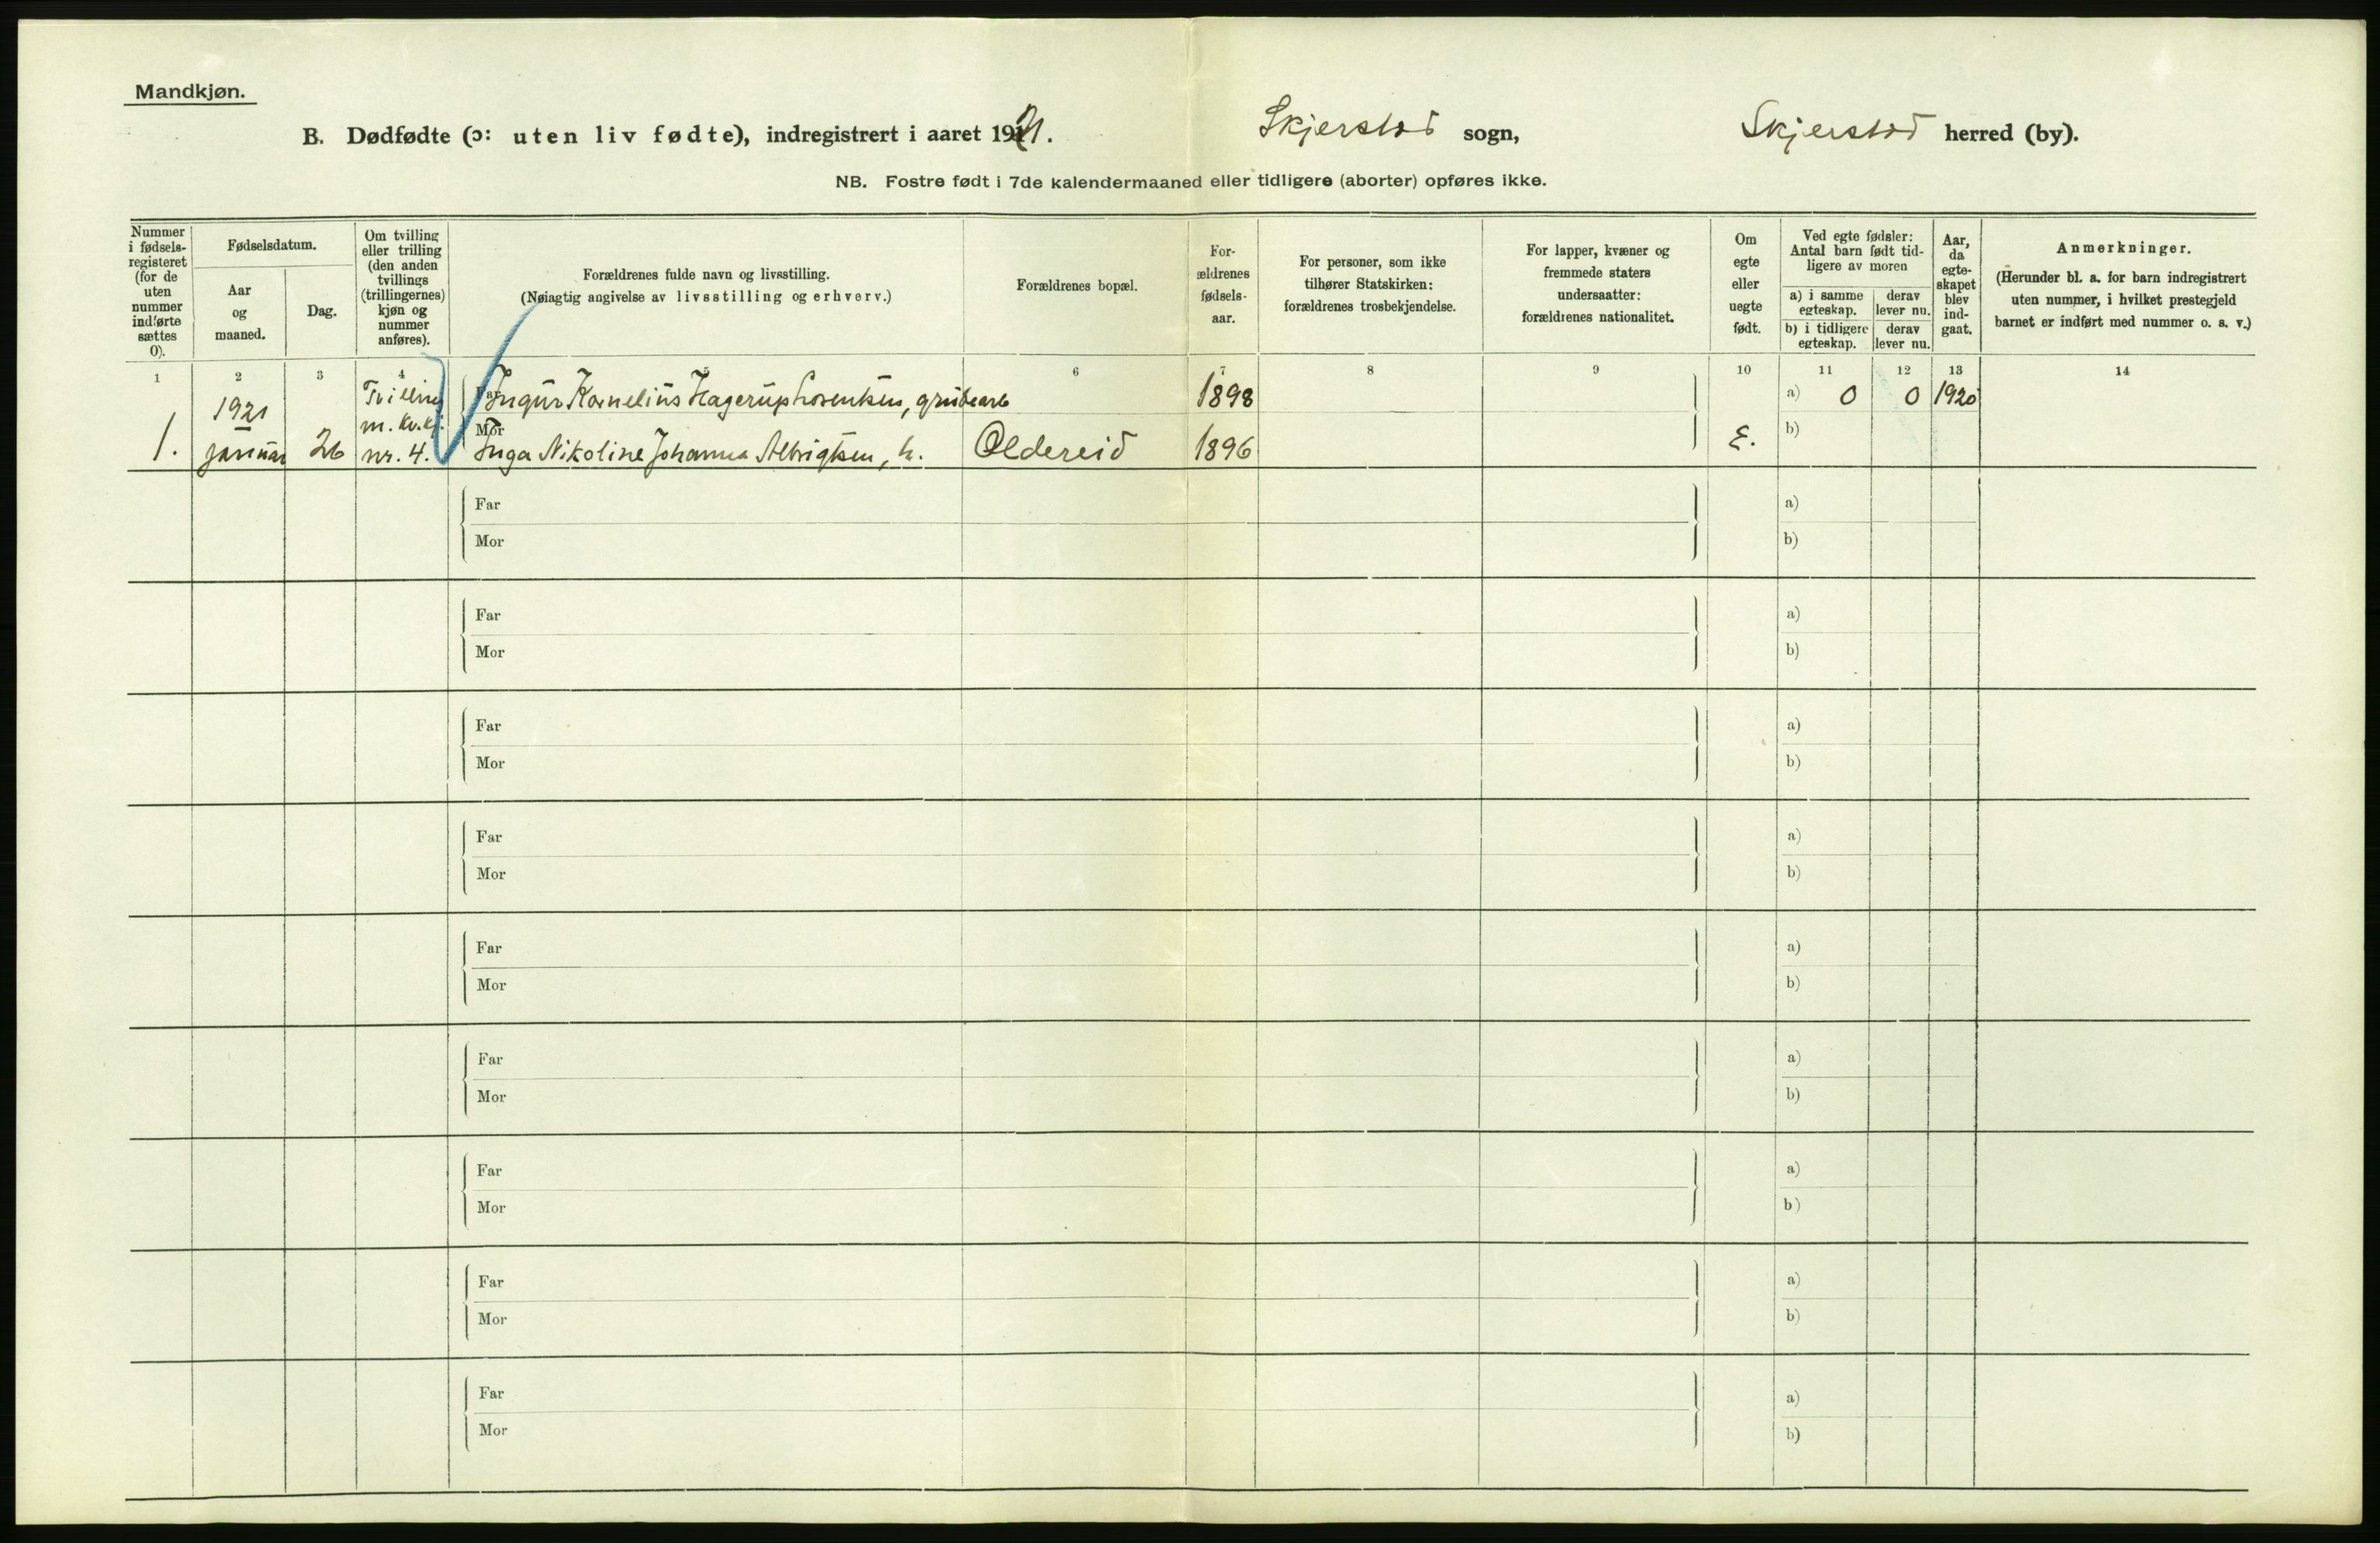 Mandkjøn.
B. Dødfødte (ɔ: uten liv fødte), indregistrert i aaret 1921. Skjerstad sogn, Skjerstad herred (by).
NB. Fostre født i 7de kalendermaaned eller tidligere (aborter) opføres ikke.
Nummer
i fødsels-
registeret
(for de
uten
nummer
indførte
sættes
0).
Fødselsdatum.
Aar
og
maaned.
Dag.
Om tvilling
eller trilling
(den anden
tvillings
(trillingernes)
kjøn og
nummer
anføres).
Forældrenes fulde navn og livsstilling.
(Nøiagtig angivelse av livsstilling og erhverv.)
Forældrenes bopæl.
For-
ældrenes
fødsels-
aar.
For personer, som ikke
tilhører Statskirken:
forældrenes trosbekjendelse.
For lapper, kvæner og
fremmede staters
undersaatter:
forældrenes nationalitet.
Om
egte
eller
uegte
født.
Ved egte fødsler:
Antal barn født tid-
ligere av moren
a) i samme
egteskap.
derav
lever nu.
b) i tidligere
egteskap.
derav
lever nu.
Aar,
da
egte-
skapet
blev
ind-
gaat.
Anmerkninger.
(Herunder bl. a. for barn indregistrert
uten nummer, i hvilket prestegjeld
barnet er indført med nummer o. s. v.)
1 2 3 4 5 6 7 8 9 10 11 12 13 14
1. 1921
januar 26
Tvilling
m. kv.kj.
nr. 4.
Far Ingvr Kornelius Hagerup Lorentsen, grubearb 1898 a) 0 0 1920
Mor Inga Nikoline Johanna Albrigtsen, h. Oldereid 1896 E. b)
Far a)
Mor b)
Far a)
Mor b)
Far a)
Mor b)
Far a)
Mor b)
Far a)
Mor b)
Far a)
Mor b)
Far a)
Mor b)
Far a)
Mor b)
Far a)
Mor b)